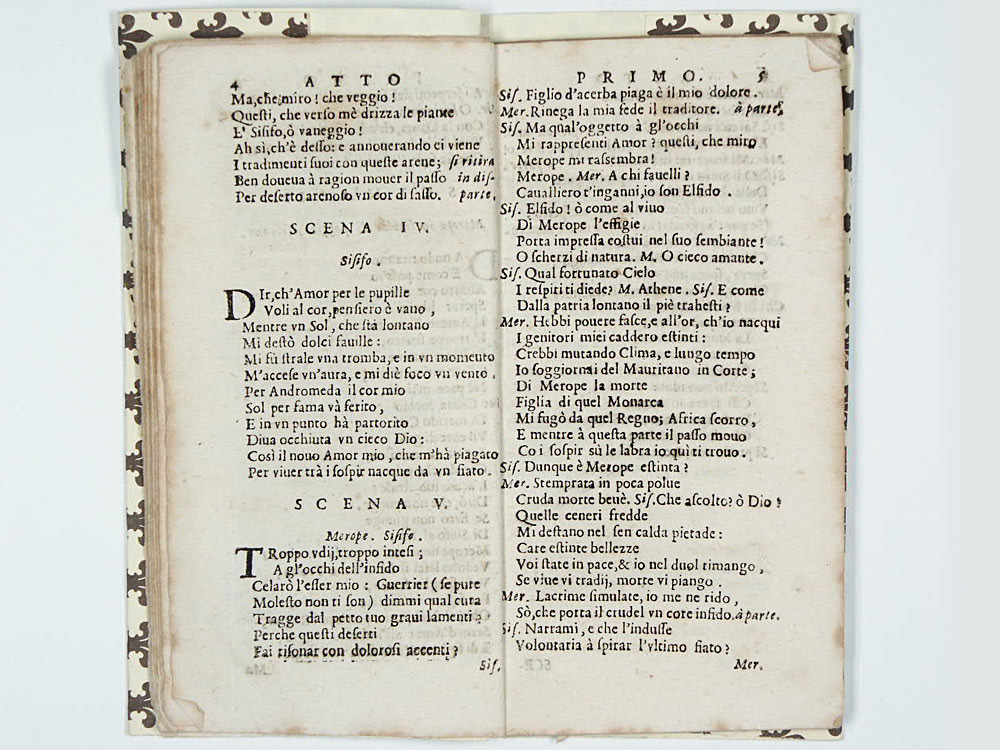 4 ATTO
Ma, che, miro! che veggio!
Questi, che verso mè drizza le piante
E' Sisifo, ò vaneggio!
Ah sì, ch'è desso: e annouerando ci viene
I tradimenti suoi con queste arene; si ritira
Ben doueua à ragion mouer il passo in dis-
Per deserto arenoso vn cor di sasso. parte.
SCENA IV.
Sisifo.
DIr, ch'Amor per le pupille
Voli al cor, pensiero è vano,
Mentre vn Sol, che stà lontano
Mi destò dolci fauille:
Mi fù strale vna tromba, e in vn momento
M'accese vn'aura, e mi diè foco vn vento.
Per Andromeda il cor mio
Sol per fama và ferito,
E in vn punto hà partorito
Diua occhiuta vn cieco Dio:
Così il nouo Amor mio, che m'hà piagato
Per viuer trà i sospir nacque da vn fiato.
SCENA V.
Merope. Sisifo.
TRoppo vdij, troppo intesi;
A gl'occhi dell'infido
Celarò l'esser mio: Guerrier (se pure
Molesto non ti son) dimmi qual cura
Tragge dal petto tuo graui lamenti?
Perche questi deserti
Fai risonar con dolorosi accenti?
Sis.
PRIMO. 5
Sis. Figlio d'acerba piaga è il mio dolore.
Mer. Rinega la mia fede il traditore. à parte.
Sis. Ma qual'oggetto à gl'occhi
Mi rappresenti Amor? questi, che miro
Merope mi rassembra!
Merope. Mer. A chi fauelli?
Caualliero t'inganni, io son Elfido.
Sis. Elfido! ò come al viuo
Di Merope l'effigie
Porta impressa costui nel suo sembiante!
O scherzi di natura. M. O cieco amante.
Sis. Qual fortunato Cielo
I respiri ti diede? M. Athene. Sis. E come
Dalla patria lontano il piè trahesti?
Mer. Hebbi pouere fasce, e all'or, ch'io nacqui
I genitori miei caddero estinti:
Crebbi mutando Clima, e lungo tempo
Io soggiornai del Mauritano in Corte;
Di Merope la morte
Figlia di quel Monarca
Mi fugò da quel Regno; Africa scorro,
E mentre à questa parte il passo mouo
Co i sospir sù le labra io quì ti trouo.
Sis. Dunque è Merope estinta?
Mer. Stemprata in poca polue
Cruda morte beuè. Sis. Che ascolto? ò Dio!
Quelle ceneri fredde
Mi destano nel sen calda pietade:
Care estinte bellezze
Voi state in pace, & io nel duol rimango,
Se viue vi tradij, morte vi piango.
Mer. Lacrime simulate, io me ne rido,
Sò, che porta il crudel vn core infido. à parte.
Sis. Narrami, e che l'indusse
Volontaria à spirar l'vltimo fiato?
Mer.